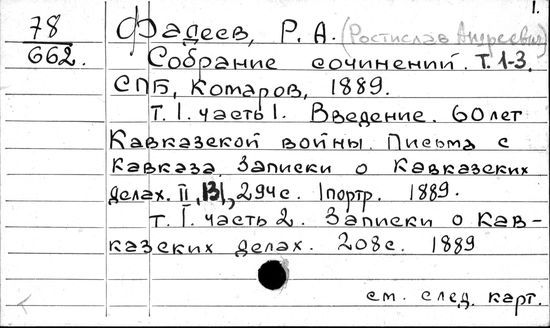 1.
78
662.
Фадеев, Р. А. (Ростислав Андреевич)
Собрание сочинений. Т. 1-3.
СПБ, Комаров, 1889.
Т. I. часть I. Введение. 60 лет
Кавказской войны. Письма с
Кавказа. Записки о Кавказских
делах. II, 131, 294 с. 1 портр. 1889.
Т. I. часть 2. Записки о Кав-
казских делах. 208 с. 1889
см. след. карт.